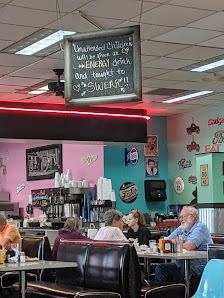 Unattended Children
will be given an
ENERGY drink
and taught to
SWEAR!!
EAT